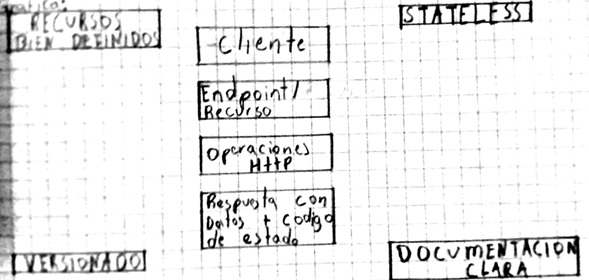 RECURSOS
BIEN DEFINIDOS
STATELESS
Cliente
Endpoint/
Recurso
Operaciones
HTTP
Respuesta con
Datos + codigo
de estado
VERSIONADO
DOCUMENTACION
CLARA